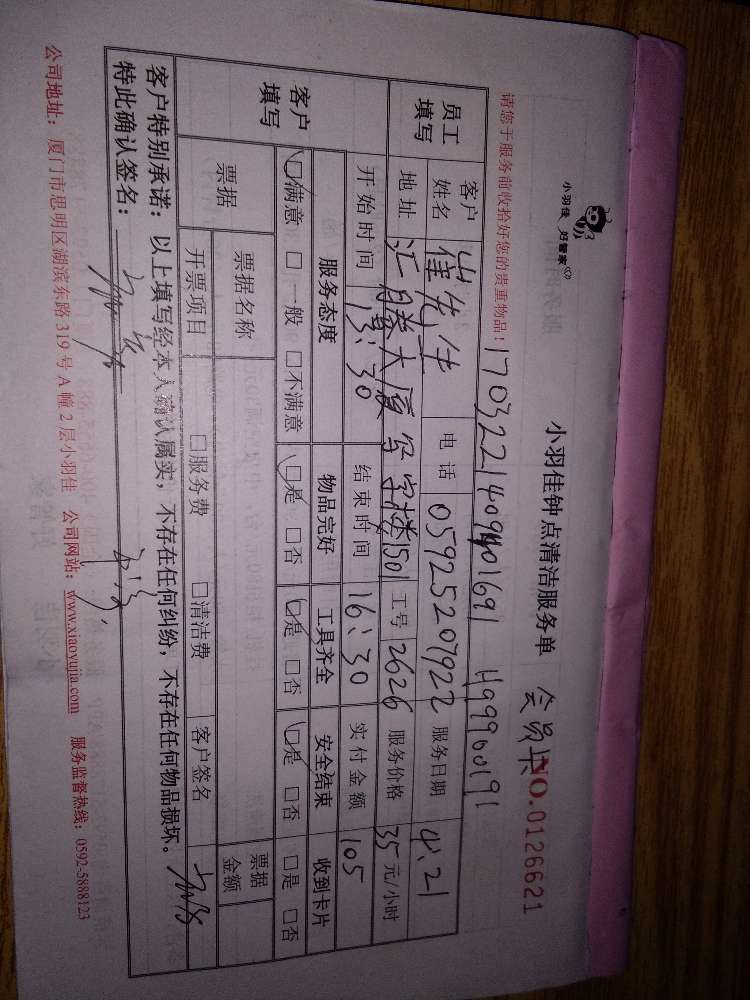 小羽佳 好管家
小羽佳钟点清洁服务单 会员卡
NO.0126621
请您于服务前收拾好您的贵重物品! H99900191
员工填写 客户姓名 崔先生 电话 05925207922 服务日期 4.21
地址 汇腾大厦写字楼1501 工号 2626 服务价格 35元/小时
客户填写 开始时间 13:30 结束时间 16:30 实付金额 105
服务态度 物品完好 工具齐全 安全结束 收到卡片
☑满意 □一般 □不满意 ☑是 □否 ☑是 □否 ☑是 □否 □是 □否
票据 票据名称 票据金额
开票项目 □服务费 □清洁费 客户签名
客户特别承诺:以上填写经本人确认属实,不存在任何纠纷,不存在任何物品损坏。
特此确认签名:
公司地址:厦门市思明区湖滨东路319号A幢2层小羽佳 公司网站:www.xiaoyujia.com 服务监督热线:0592-5888123